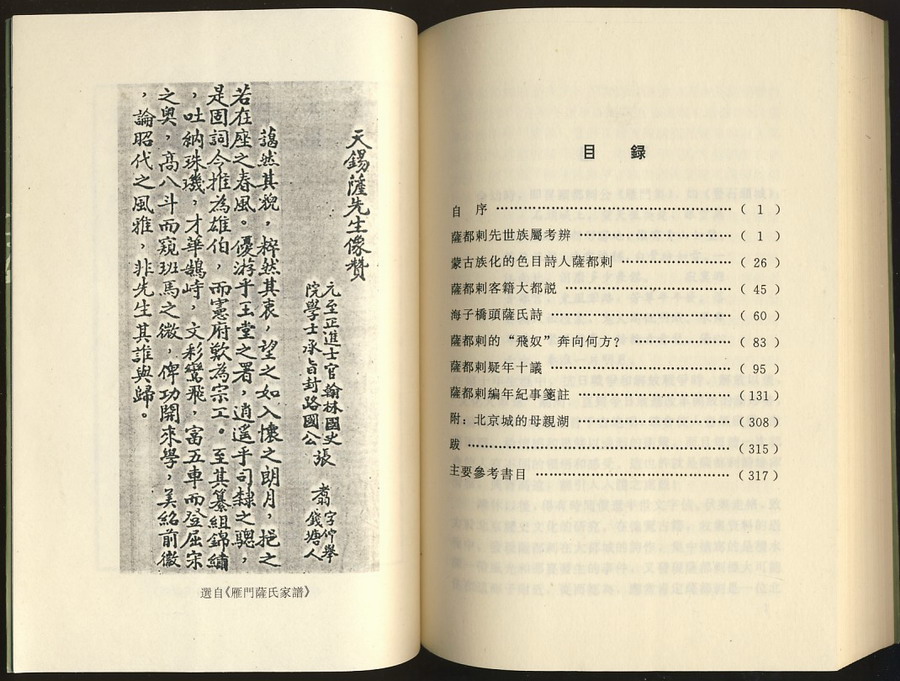 天錫薩先生像贊
元至正進士官翰林國史
院學士承旨封路國公張翥字仲舉
錢塘人
藹然其貌，粹然其衷，望之如入懷之朗月，挹之
若在座之春風。優游乎玉堂之署，逍遥乎司隸之驄，
是固詞令推為雄伯，而憲府歎為宗工。至其纂組錦繡
，吐納珠璣，才華鵠峙，文彩鸞飛，富五車而登屈宋
之奥，高八斗而窺班馬之微，俾功開來學，美紹前徽
，論昭代之風雅，非先生其誰與歸。
選自《雁門薩氏家譜》
目 録
自 序 ……………………………… ( 1 )
薩都剌先世族屬考辨 ……………………………… ( 1 )
蒙古族化的色目詩人薩都剌 ……………………………… ( 26 )
薩都剌客籍大都説 ……………………………… ( 45 )
海子橋頭薩氏詩 ……………………………… ( 60 )
薩都剌的“飛奴”奔向何方？ ……………………………… ( 83 )
薩都剌疑年十議 ……………………………… ( 95 )
薩都剌編年紀事箋註 ……………………………… (131)
附：北京城的母親湖 ……………………………… (308)
跋 ……………………………… (315)
主要參考書目 ……………………………… (317)